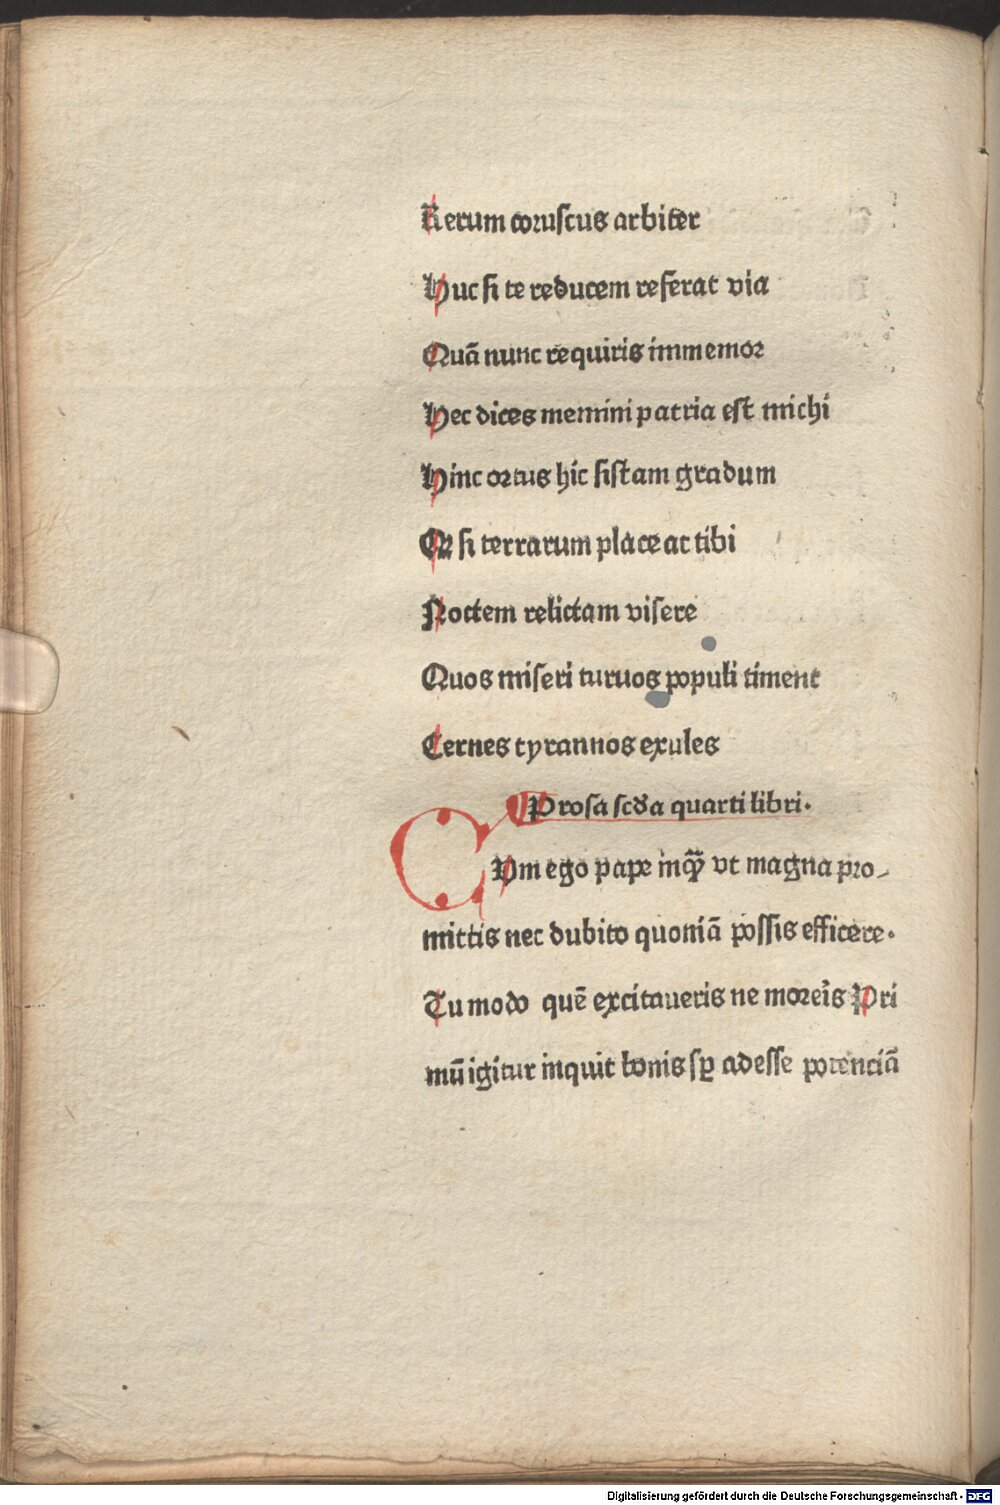 Rerum coruscus arbiter
Huc si te reducem referat via
Quā nunc requiris immemor
Hec dices memini patria est michi
Hinc ortus hic sistam gradum
Qƺ si terrarum place at tibi
Noctem relictam visere
Quos miseri turuos populi timent
Cernes tyrannos exules
Prosa scďa quarti libri.
CVm ego pape inqͣ̄ vt magna pro-
mittis nec dubito quoniā possis efficere.
Tu modo quē excitaueris ne moreris Pri
mū igitur inquit bonis sꝑ adesse potenciā
Digitalisierung gefördert durch die Deutsche Forschungsgemeinschaft - DFG